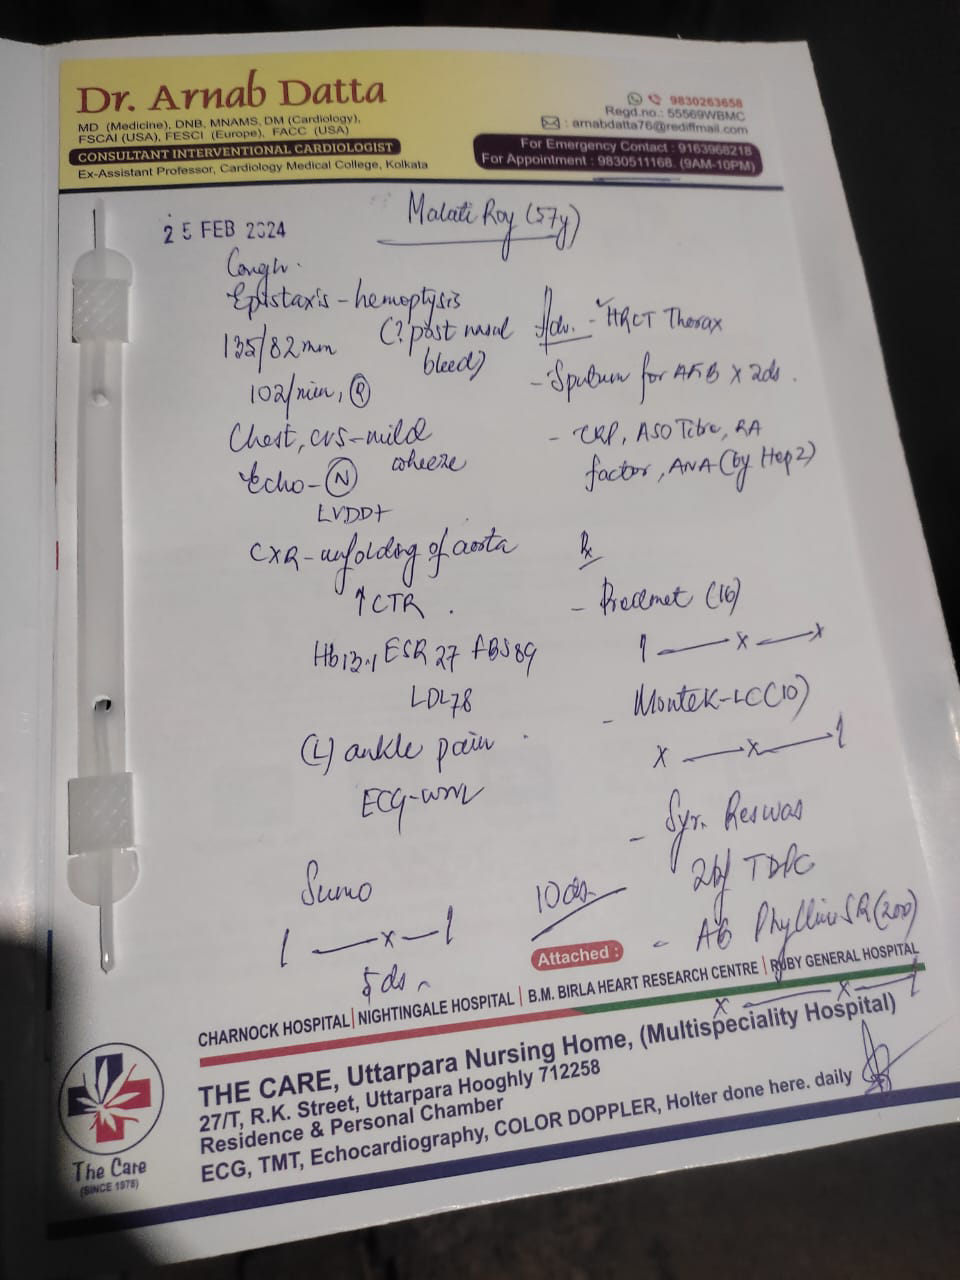 Dr. Arnab Datta
MD (Medicine), DNB, MNAMS, DM (Cardiology),
FSCAI (USA), FESCI (Europe), FACC (USA)
CONSULTANT INTERVENTIONAL CARDIOLOGIST
Ex-Assistant Professor, Cardiology Medical College, Kolkata
9830263658
Regd.no.: 55569WBMC
: arnabdatta76@rediffmail.com
For Emergency Contact : 9163968218
For Appointment : 9830511168. (9AM-10PM)
25 FEB 2024
Malati Roy (57y)
Cough.
Epistaxis - hemoptysis
(? post nasal bleed)
135/82mm
102/min, R
Chest, CVS - mild wheeze
Echo - N
LVDD+
CXR - unfolding of aorta
↑CTR.
Hb 13.1 ESR 27 FBS 89
LDL 78
(L) ankle pain
ECG - WNL
Sumo
1 — x — 1
5 ds
Adv. - HRCT Thorax
- Sputum for AFB x 2ds.
- CRP, ASO Titre, RA
factor, ANA (by Hep2)
Rx
(16)
1 — x — x
- Montek-LC (10)
x — x — 1
- Syr. Reswas
2tsf TDPC
- AB Phylline SR (200)
x — x — 1
10 ds
Attached :
CHARNOCK HOSPITAL | NIGHTINGALE HOSPITAL | B.M. BIRLA HEART RESEARCH CENTRE | RUBY GENERAL HOSPITAL
THE CARE, Uttarpara Nursing Home, (Multispeciality Hospital)
27/T, R.K. Street, Uttarpara Hooghly 712258
Residence & Personal Chamber
ECG, TMT, Echocardiography, COLOR DOPPLER, Holter done here. daily
The Care
(SINCE 1978)